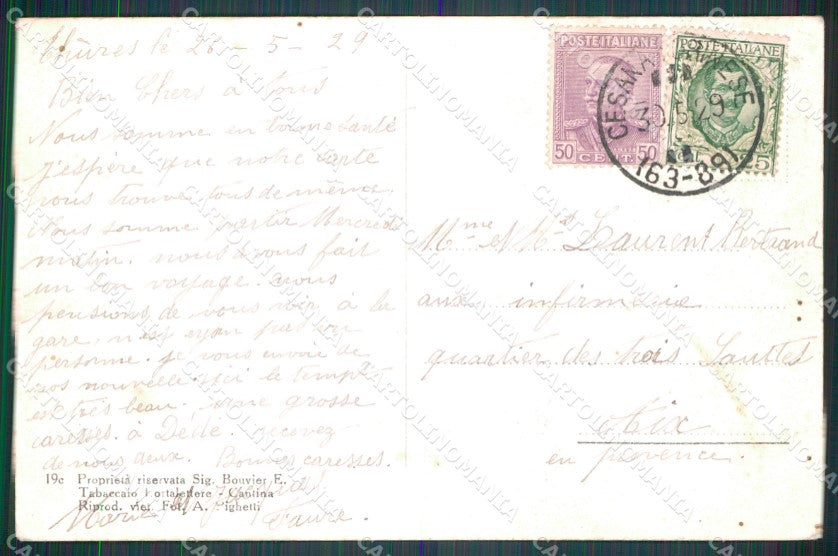 Thûres le 26 - 5 - 29
Bien Chers à tous
Nous somme en bonne santé
j'espère que notre carte
vous trouve tous de même
Nous somme partir Mercredi
matin. nous avous fait
un bon voyage. nous
pensions de vous voir à la
gare. n'est eyon pas vu
personne. je vous envoie de
nos nouvelle. ici le temps
est très beau. une grosse
caresses. à Dédé. recevez
de nous deux. Bonnes caresses.
Marie et
Faure.
19c Proprietà riservata Sig. Bouvier E.
Tabaccaio Portalettere - Cantina
Riprod. viet. Fot. A. Pighetti
POSTE ITALIANE
50 CENT. 50
POSTE ITALIANE
25
CESANA TORINESE
30.5.29
(163-89)
Mme et Mr Laurent Bertrand
aux infirmerie
quartier des trois Sauttes
Aix
en provence.
CARTOLINOMANIA